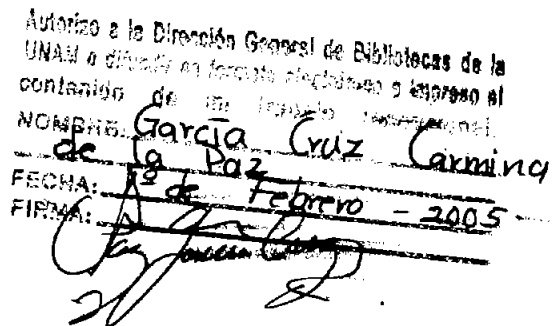 Autorizo a la Dirección General de Bibliotecas de la
UNAM a difundir en formato electrónico e impreso el
contenido de mi trabajo recepcional.
NOMBRE: García Cruz Carmina
de la Paz
FECHA: 1º de Febrero - 2005
FIRMA: